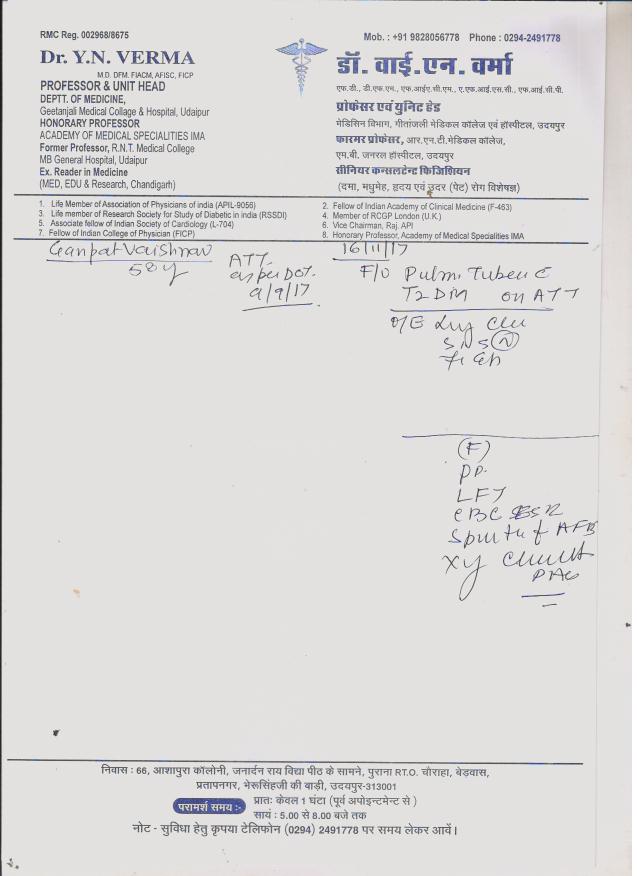 RMC Reg. 002968/8675
Mob. : +91 9828056778 Phone : 0294-2491778
Dr. Y.N. VERMA
M.D. DFM. FIACM, AFISC, FICP
PROFESSOR & UNIT HEAD
DEPTT. OF MEDICINE,
Geetanjali Medical Collage & Hospital, Udaipur
HONORARY PROFESSOR
ACADEMY OF MEDICAL SPECIALITIES IMA
Former Professor, R.N.T. Medical College
MB General Hospital, Udaipur
Ex. Reader in Medicine
(MED, EDU & Research, Chandigarh)
डॉ. वाई.एन. वर्मा
एफ.डी., डी.एफ.एम., एफ.आईए.सी.एम., ए.एफ.आई.एस.सी., एफ.आई.सी.पी.
प्रोफेसर एवं युनिट हेड
मेडिसिन विभाग, गीतांजली मेडिकल कॉलेज एवं हॉस्पीटल, उदयपुर
फारमर प्रोफेसर, आर.एन.टी.मेडिकल कॉलेज,
एम.बी. जनरल हॉस्पीटल, उदयपुर
सीनियर कन्सलटेन्ट फिजिशियन
(दमा, मधुमेह, हृदय एवं उदर (पेट) रोग विशेषज्ञ)
1. Life Member of Association of Physicians of india (APIL-9056)
2. Fellow of Indian Academy of Clinical Medicine (F-463)
3. Life member of Research Society for Study of Diabetic in india (RSSDI)
4. Member of RCGP London (U.K.)
5. Associate fellow of Indian Society of Cardiology (L-704)
6. Vice Chairman, Raj. API
7. Fellow of Indian College of Physician (FICP)
8. Honorary Professor, Academy of Medical Specialities IMA
Ganpat Vaishnav
58y
ATT
as per DOT.
9/9/17
16/11/17
F/O Pulm. Tuberc
T2DM on ATT
O/E
SNS (N)
(F)
PP.
LFT
CBC ESR
Sputum f AFB
Xy Chest
PA
निवास : 66, आशापुरा कॉलोनी, जनार्दन राय विद्या पीठ के सामने, पुराना RT.O. चौराहा, बेड़वास,
प्रतापनगर, भेरूसिंहजी की बाड़ी, उदयपुर-313001
परामर्श समय :- प्रातः केवल 1 घंटा (पूर्व अपोइन्टमेन्ट से )
सायं : 5.00 से 8.00 बजे तक
नोट - सुविधा हेतु कृपया टेलिफोन (0294) 2491778 पर समय लेकर आवें।